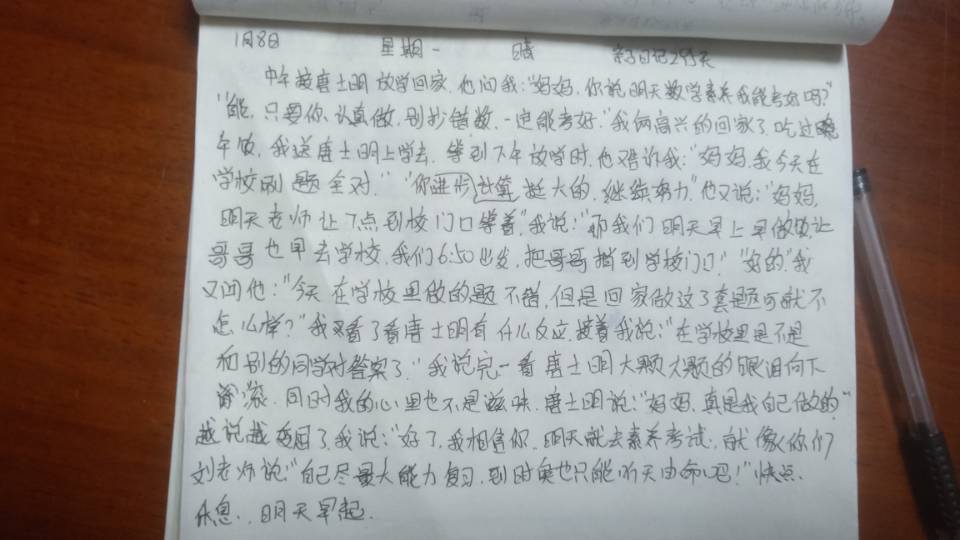 1月8日 星期一 晴 亲子日记299天
中午接唐士明放学回家,他问我:“妈妈,你说明天数学素养我能考好吗?”
“能,只要你认真做,别抄错数,一定能考好。”我俩高兴的回家了,吃过
午饭,我送唐士明上学去,等到下午放学时,他又告诉我:“妈妈,我今天在
学校刷题全对。”“你进步也算挺大的,继续努力”他又说:“妈妈,
明天老师让7点到校门口等着”我说:“那我们明天早上早做饭,让
哥哥也早去学校,我们6:50出发,把哥哥捎到学校门口!”“好的”我
又问他:“今天在学校里做的题不错,但是回家做这了套题可就不
怎么样?”我又看了看唐士明有什么反应,接着我说:“在学校里是不是
和别的同学对答案了。”我说完一看唐士明大颗大颗的眼泪向下
滚,同时我的心里也不是滋味,唐士明说:“妈妈,真是我自己做的”
越说越委屈了,我说:“好了,我相信你,明天就去素养考试,就像你们
刘老师说:“自己尽最大能力复习,到时候也只能听天由命吧!”快点
休息,明天早起.